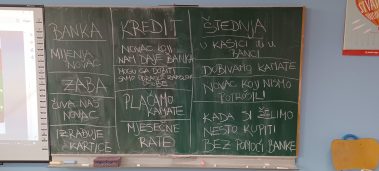 BANKA
MIJENJA
NOVAC
ZABA
ČUVA NAŠ
NOVAC
IZRAĐUJE
KARTICE
KREDIT
NOVAC KOJI
NAM DAJE BANKA
MOGU GA DOBITI
SAMO ODRASLE
OSOBE
PLAĆAMO
KAMATE
MJESEČNE
RATE
ŠTEDNJA
U KASICI ILI U
BANCI
DOBIVAMO KAMATE
NOVAC KOJI NISMO
POTROŠILI
KADA SI ŽELIMO
NEŠTO KUPITI
BEZ POMOĆI BANKE